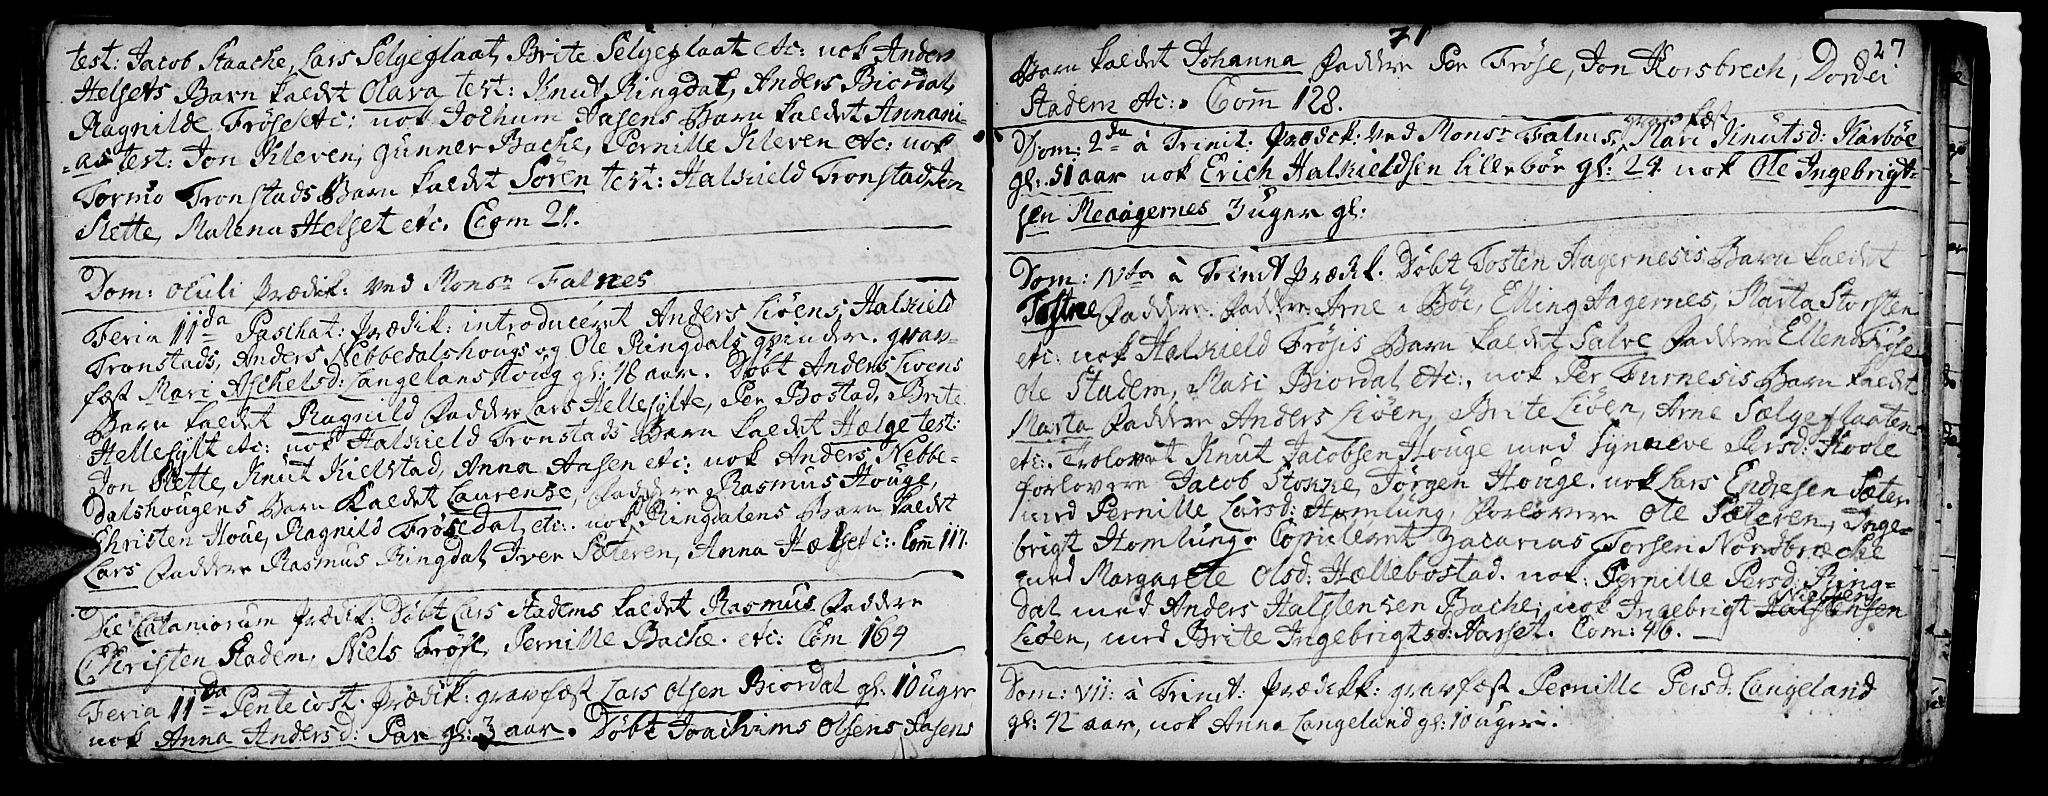 test: Jacob Staache, Lars Selgeflaat, Brite Selgeflaat etc: nok Anders
Helsets Barn kaldet Olava test: Knut Ringdal, Anders Biordal,
Ragnilde Frøse etc: nok Jochum Aasens Barn kaldet Annani-
=as test: Jon Kleven, Gunner Bache, Pernille Kleven etc: nok
Tormo Tronstads Barn kaldet Søren test: Halkield Tronstad, Jon
Slette, Malena Helset etc. Com 21.
Dom: Oculi Prædik: ved Monsr Falnes
Feria 11da Paschat: Prædik: introduceret Anders Liøens, Halkield
Tronstads, Anders Nebbedalshougs og Ole Ringdals qvinder. grav-
fæst Mari Aschelsd: Langelanskoug gl: 48 aar. Døbt Anders Liøens
Barn kaldet Ragnild Faddere Lars Hellesylte, Per Bostad, Brite
Hellesylt etc: nok Halkield Tronstads Barn kaldet Hælge test:
Jon Slette, Knut Kielstad, Anna Aasen etc: nok Anders Nebbe-
dalshougens Barn kaldet Laurense, Faddere Rasmus Houge,
Christen Houe, Ragnild Frøsedal etc: nok Ringdalens Barn kaldet
Lars Faddere Rasmus Ringdal Iver Sæteren, Anna Hælset c: Com 117.
Die Rataniorum Prædik: Døbt Lars Stadems kaldet Rasmus Faddere
Christen Stadem, Niels Frøse, Pernille Bache. etc: Com 164
Feria 11da Pentecost: Prædik: gravfæst Lars Olsen Biordal gl: 10 uger
nok Anna Andersd: Par gl: 3 aar. Døbt Joachims Olsens Aasens
71
27
Barn kaldet Johanna Faddere Per Frøse, Jon Korsbrech, Dordei
Stadem etc: Com 128.
gravfæst
Dom: 2da à Trinit: Prædik: ved Monsr Falnes, Mari Knutsd: Karbøe
gl: 51 aar nok Erich Halkieldsen Lillebøe gl: 24 nok Ole Ingebrigt-
sen Meaagernes 3 uger gl:
Dom: Vta à Trinit Prædik. Døbt Tosten Aagernesis Barn kaldet
Faddere. Faddere Arne i Bøe, Elling Aagernes, Marta Storsten
etc: nok Halkield Frøsis Barn kaldet Salve Faddere Ellend Frøse
Ole Stadem, Mari Biordal etc:, nok Per Furnesis Barn kaldet
Marta Faddere Anders Liøen, Brite Liøen, Arne Sælgeflaaten
etc: Trolovet Knut Jacobsen Houge med Synneve Persd: Hoole
forlovere Jacob Stokke, Jørgen Houge. nok Lars Endresen Sæter
med Pernille Larsd: Homlung, Forlovere Ole Sæteren, Inge-
brigt Homlung. Copuleret Zacarias Torsen Nordbræcke
med Margarete Olsd: Hællebostad. nok: Pernille Persd: Ring-
Nielsen
dal med Anders Halstensen Bache; nok Ingebrigt Halstensen
Liøen, med Brite Ingebrigtsd: Aarset. Com: 46.
Dom: VII: à Trinit: Prædikk: gravfæst Pernille Persd: Langeland
gl: 42 aar, nok Anna Langeland gl: 10 uger.